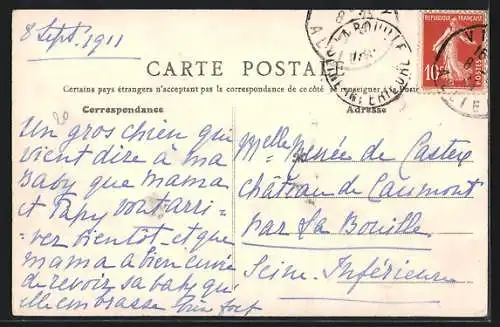 8 Sept. 1911
CARTE POSTALE
Certains pays étrangers n'acceptent pas la correspondance de ce côté
Correspondance
Adresse
20
Un gros chien qui
vient dire à ma
Baby que mama
et Papy vont arri-
ver bientôt et que
mama a bien envie
de revoir sa baby qu'
elle embrasse bien fort
Mlle Renée de Castex
Château de Caumont
par La Bouille
Seine Inférieure
LA BOUILLE
INFÉRIEURE
RÉPUBLIQUE FRANÇAISE
10c
POSTES